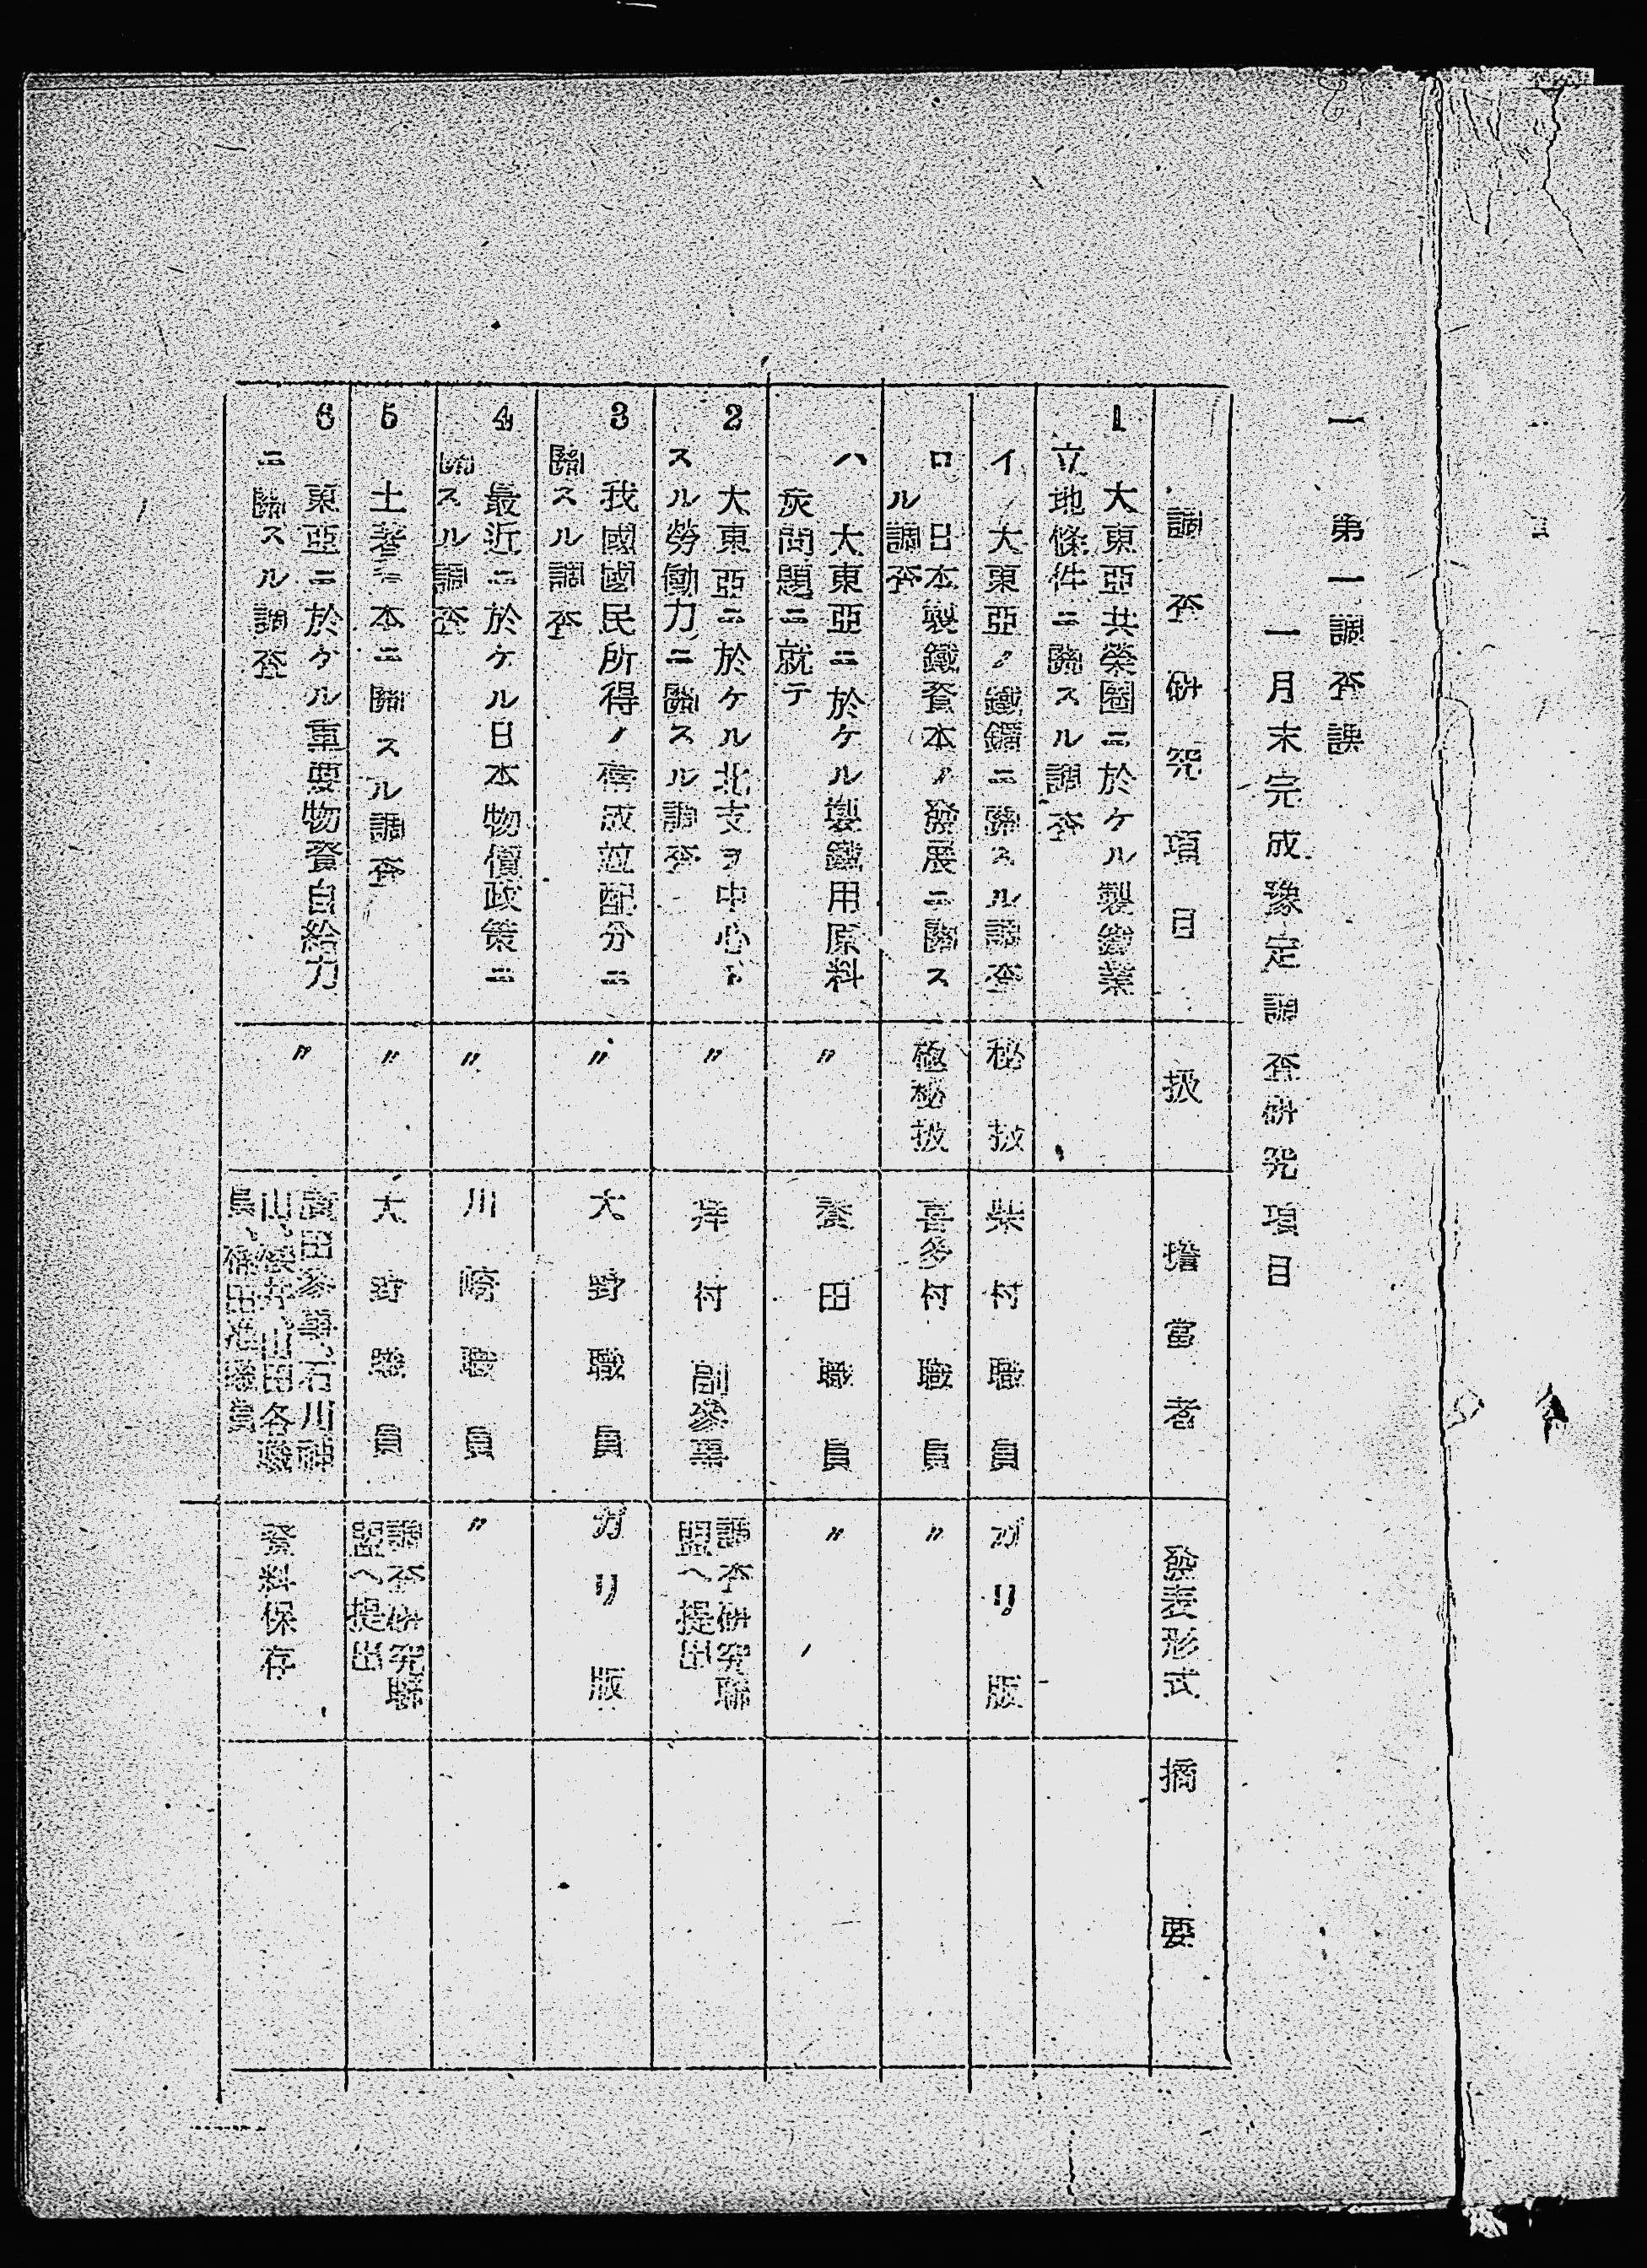 一 第一調査課
一月末完成豫定調査研究項目
調査研究項目
扱
擔當者
發表形式
摘要
1 大東亞共榮圈ニ於ケル製鐵業
立地條件ニ關スル調査
イ 大東亞ノ鐵鑛ニ關スル調査
秘扱
柴村職員
ガリ版
ロ 日本製鐵資本ノ發展ニ關ス
ル調査
極秘扱
喜多村職員
〃
ハ 大東亞ニ於ケル製鐵用原料
炭問題ニ就テ
〃
田職員
〃
2 大東亞ニ於ケル北支ヲ中心ト
スル勞働力ニ關スル調査
〃
村副參事
調査研究聯
盟ヘ提出
3 我國國民所得ノ構成竝配分ニ
關スル調査
〃
大野職員
ガリ版
4 最近ニ於ケル日本物價政策ニ
關スル調査
〃
川崎職員
〃
5 土著資本ニ關スル調査
〃
大野職員
調査研究聯
盟ヘ提出
6 東亞ニ於ケル重要物資自給力
ニ關スル調査
〃
田參事、石川
山、井、山田各職
田職員
資料保存